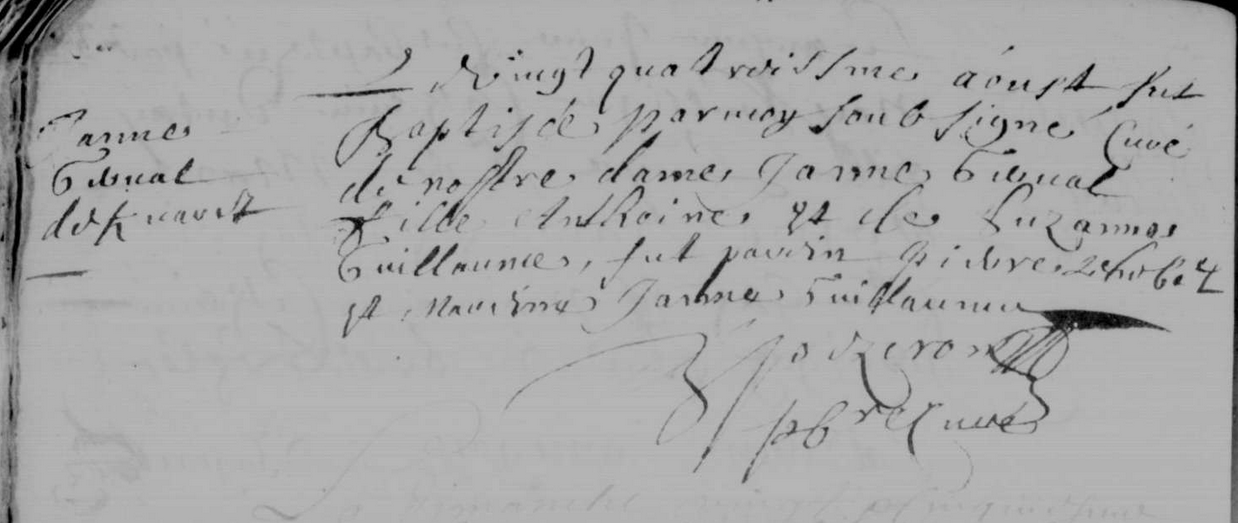 Janne
Gibual
Le vingt quatreiesme aoust fut
Baptisée par moy soub signé Curé
de nostre dame Janne Gibual
fille Anthoine et de Suzanne
Guillaume, fut parin Pierre
et mareine Janne Guillaume
pbre Curé